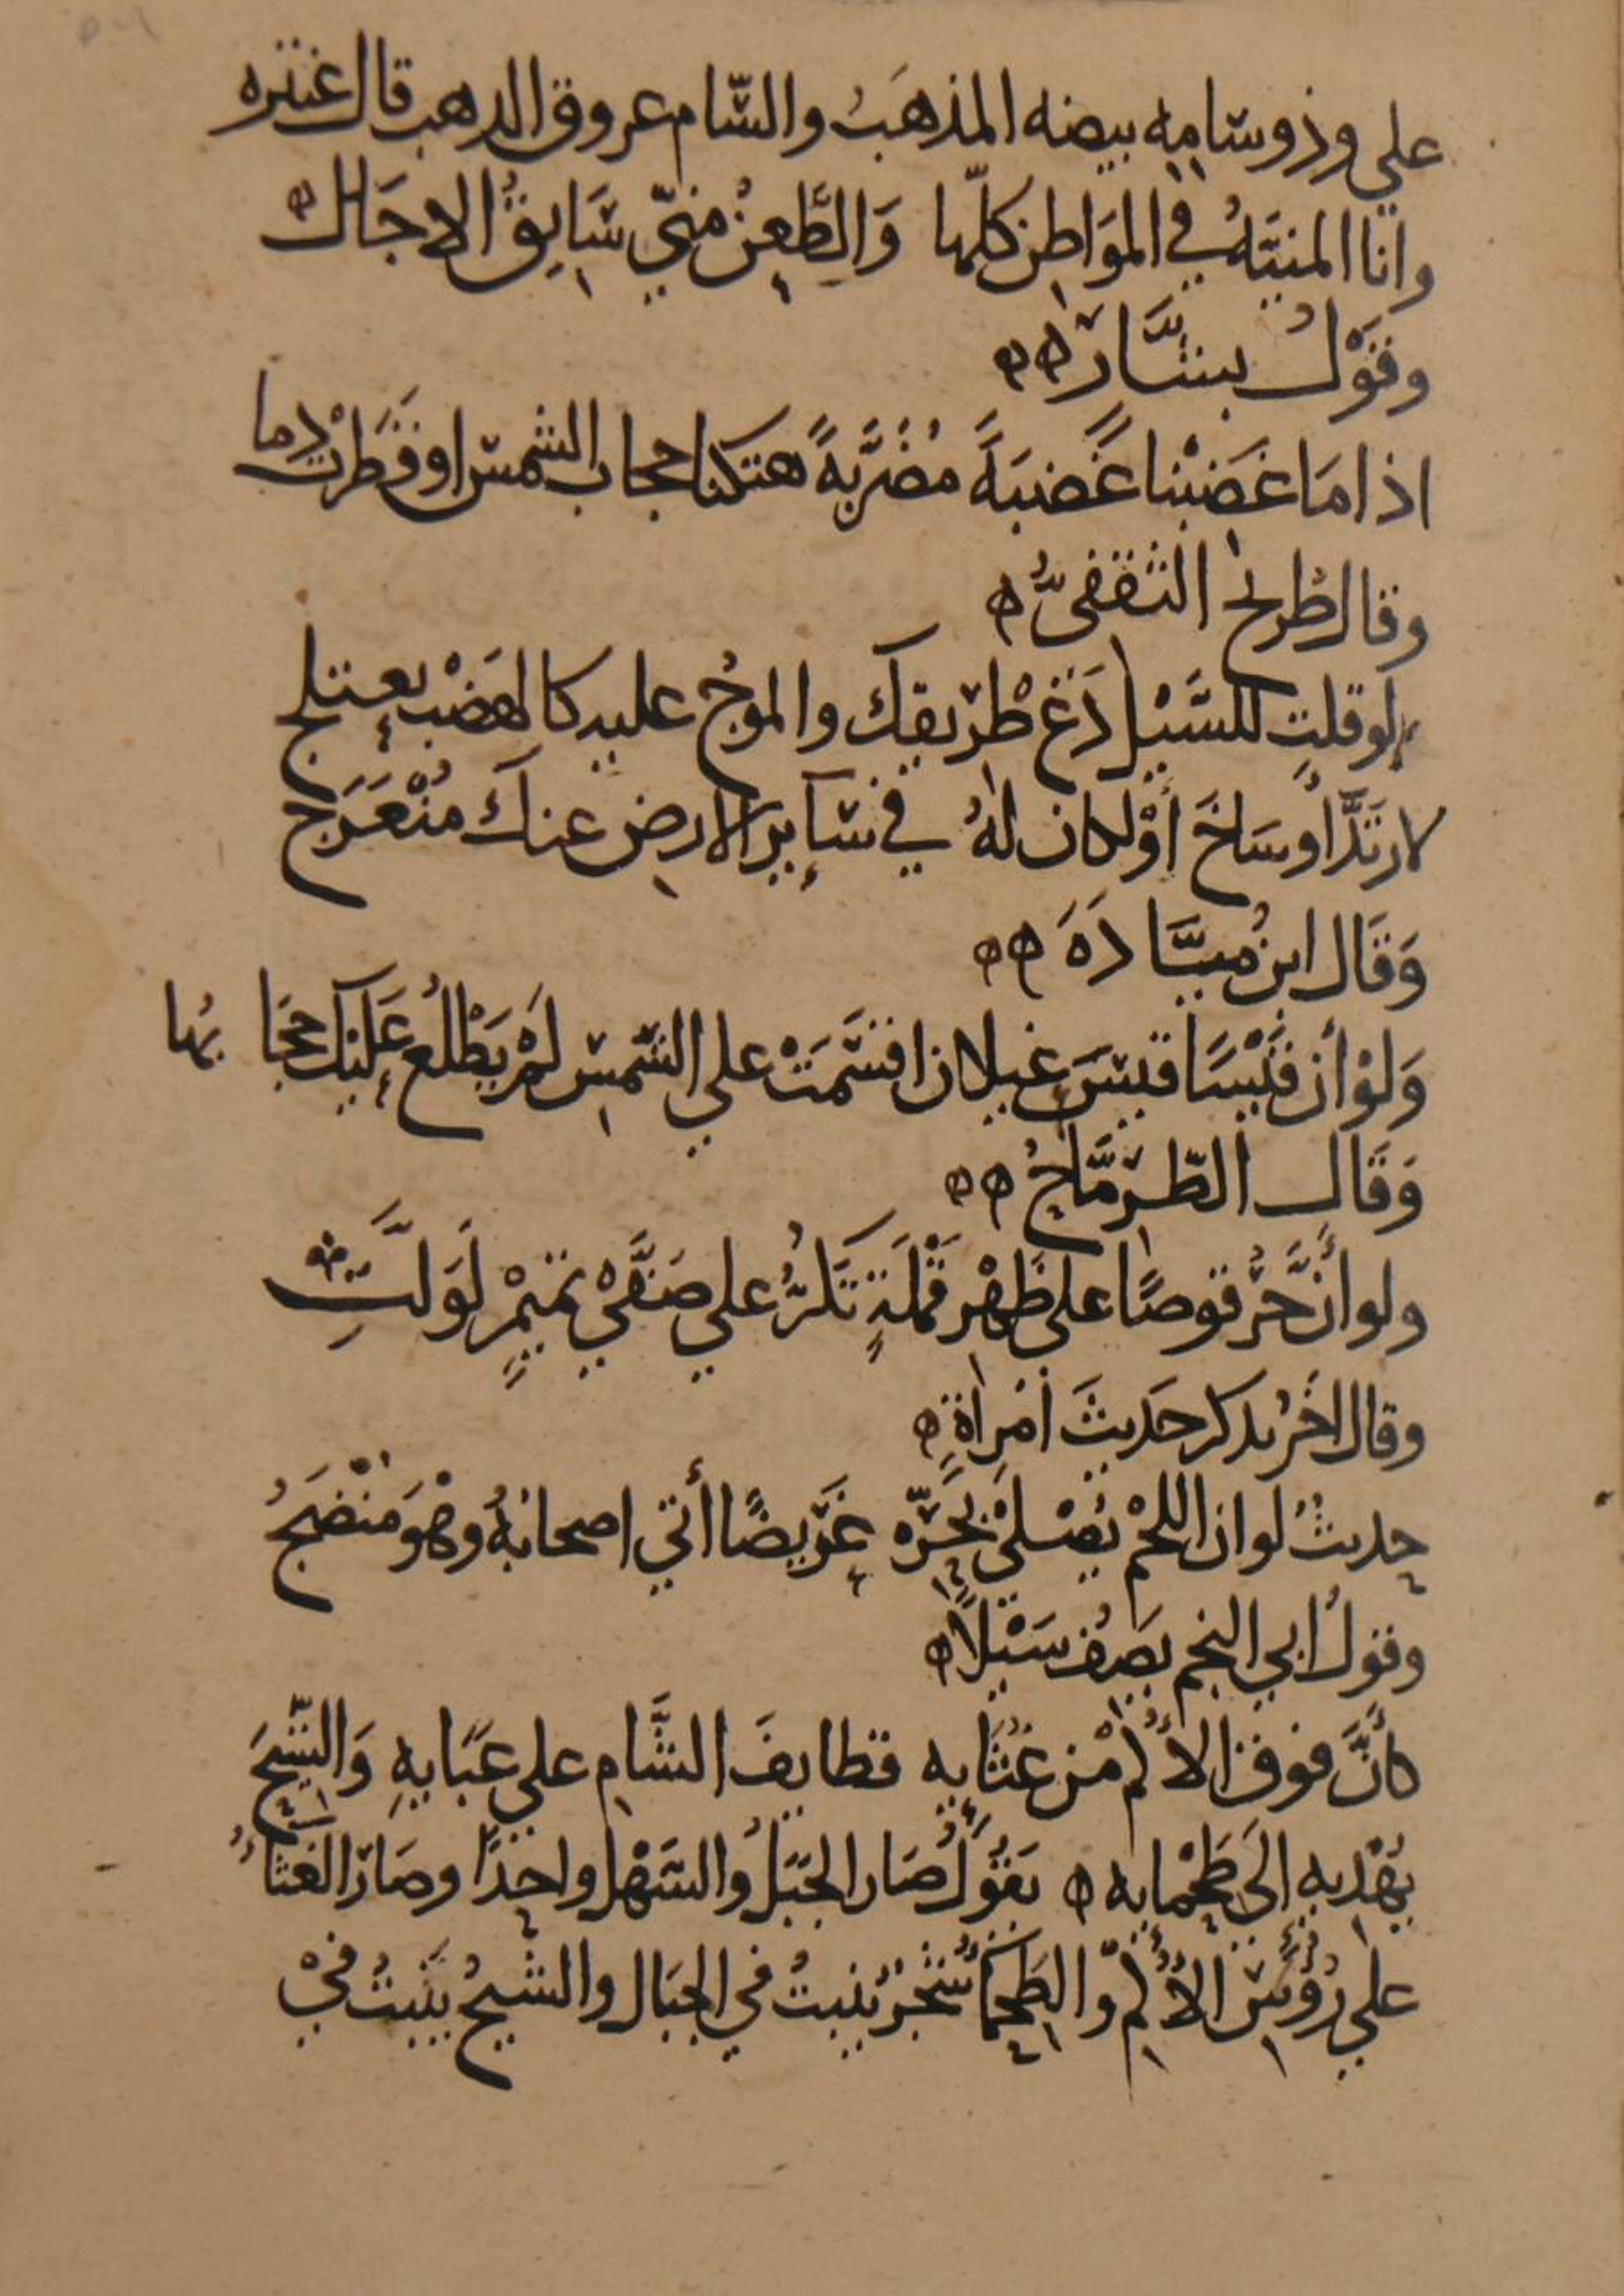 علي وذو سامه بيضه المذهَبُ والسّام عروق الدهب قال عنتره
وانا المنيّهُ في الموَاطِن كلّها وَالطَّعنُ منّي سَابِقُ الاجَال
وقوْلُ بشَّار
اذا مَا غضَبْنا غَضبَةً مُضَرِّيةً هتكنا حجاب الشمس او قَطرَتْ دما
وقال طُريح الثقفىُّ
لو قلت للسَّيْل دَعْ طريقك والموجُ عليه كالهَضْب يعتلج
لارتَدَّ او سَاخَ أوْ لكان لهُ في سَآيِر الارض عنك مُنْعَرَج
وَقَال ابنُ ميَّادَهَ
وَلوْ أن قَيْسًا قيسَ عيلان اقسَمَتْ علي الشمس لمْ يَطْلُع عَليك حجَابُها
وَقَال الطِّرِمَّاحُ
ولو أنَّ حُرقوصًا علي ظَهْر قَمْلَةٍ تَكرُّ علي صَفَّيْ تميْمٍ لَوَلَّتِ
وقال اخَرُ يدكر حَديثَ امْرِاةٍ
حديثُ لو ان اللحْم يُصْلَىْ بحَرّه غَرِيضًا أتي اصحابَهُ وهْوَ مُنْضَجُ
وقولُ ابي النجم يَصِفُ سَيْلاً
كأنَّ فوق الأُكْم مْن غُثَايِه قطايفَ الشَّامِ علي عَبَايِهِ وَالشّيحَ
يُهْديهِ الَى طَحْمايه يَقُولُ صَار الجَبَلُ والسَهْلُ واحِدًا وصَارَ الغثاءُ
علي رُؤُسِ الأُكْمِ وَالطَحْمَاءُ شجَرُ يَنبتُ في الجبَال والشيحُ يَنْبتُ فيْ